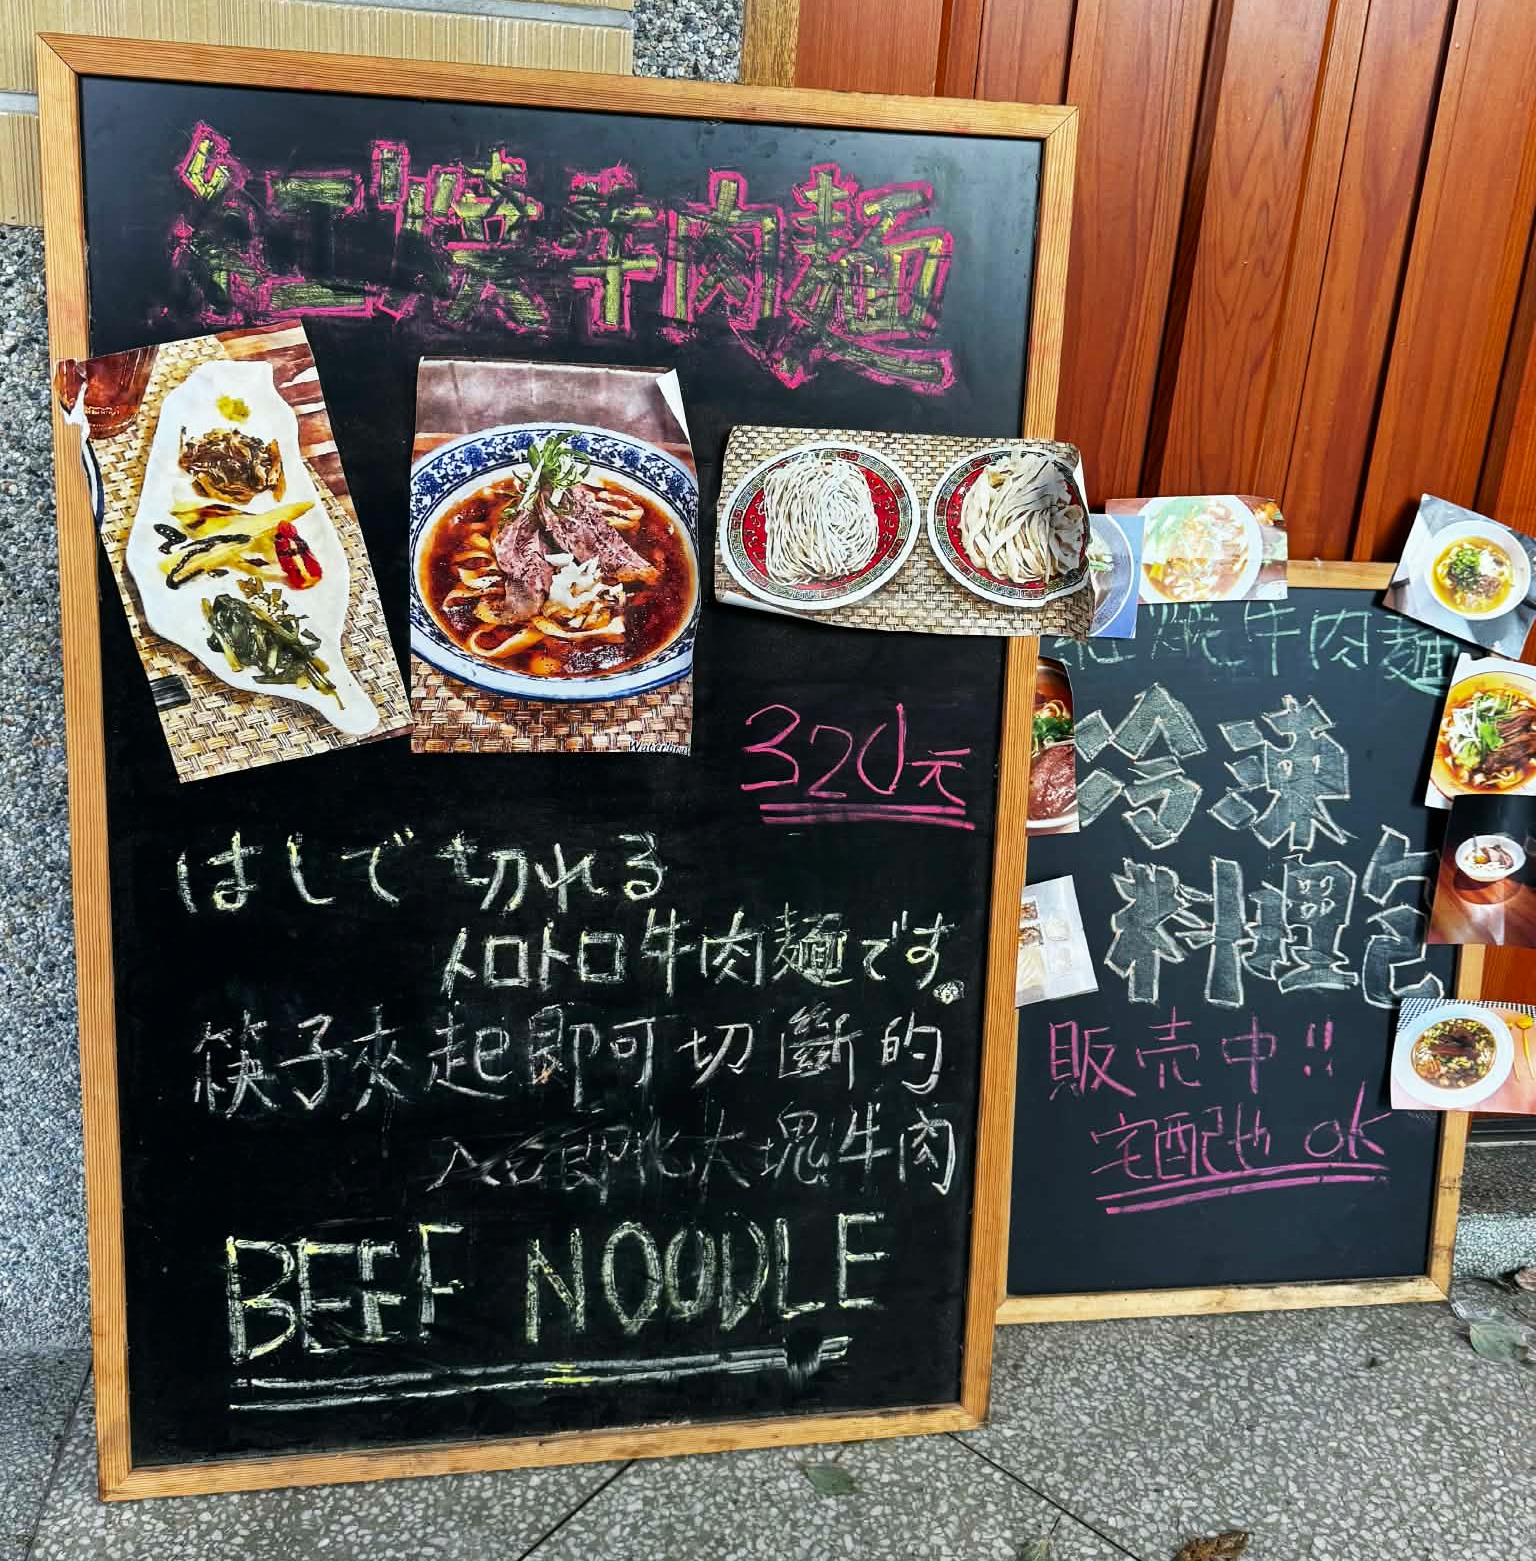 紅燒牛肉麵
320元
はしで切れる
トロトロ牛肉麵です。
筷子夾起即可切斷的
入口即化大塊牛肉
BEEF NOODLE
紅燒牛肉麵
冷凍
料理包
販売中!!
宅配也 OK